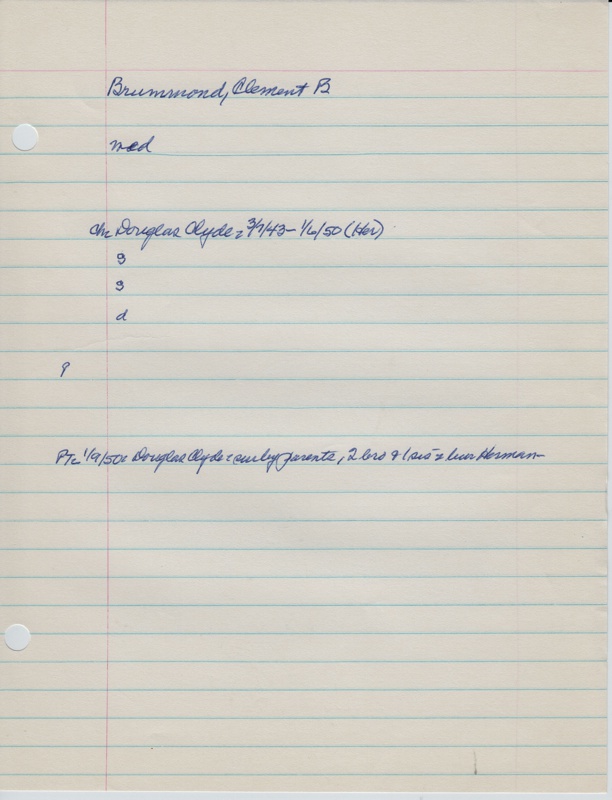 Brummond, Clement B
med
ch= Douglas Clyde = 3/7/43 - 1/6/50 (Her)
s
s
d
PT= 1/9/50= Douglas Clyde = sur by parents, 2 bro & 1 sis = bur Herman